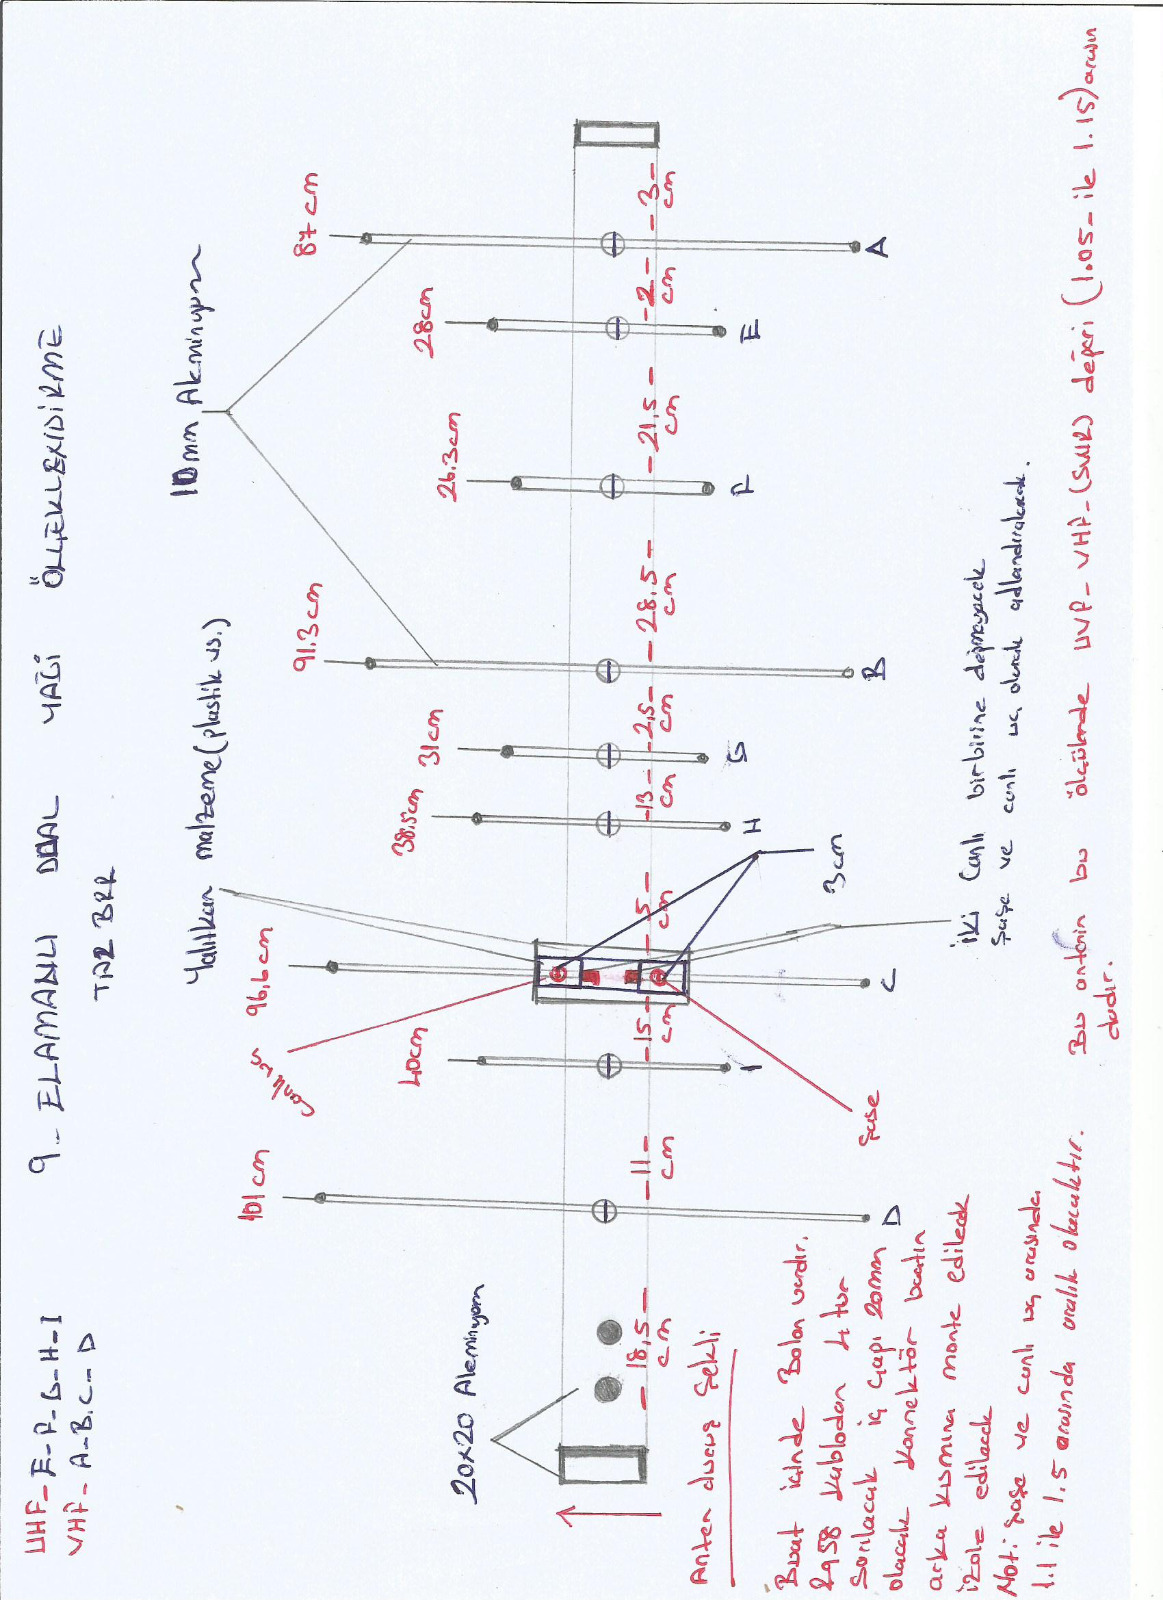 UHF_ E_ F_ G_ H_ I
VHF_ A_ B. C_ D
9_ ELAMANLI DUAL YAGİ ÖLÇEKLENDİRME
TA2 BRR
Yalıtkan malzeme (plastik vs.)
10mm Aleminyom
101 cm
canlı uç
96,6 cm
91.3 cm
87 cm
40cm
38.5cm
31cm
26.3cm
28cm
20x20 Aleminyom
18,5 cm
11 cm
15 cm
5 cm
13 cm
2,5 cm
28.5 cm
21,5 cm
2 cm
3 cm
Anten duruş şekli
I
H
G
F
E
3cm
şase
D
C
B
A
Buat içinde Balon vardır.
Rg58 Kablodan 4 tur
Sarılacak iç çapı 20mm
olacak Konnektör buatın
arka kısmına monte edilecek
izole edilecek
Not: şaşe ve canlı uç arasında
1.1 ile 1.5 arasında aralık olacaktır.
İki Canlı birbirine değmeyecek
Şaşe ve canlı uç olarak adlandırılacak.
Bu antenin bu ölçülerde UVF_ VHF_ (SWR) değeri (1.05_ ile 1.15) arasın
dadır.